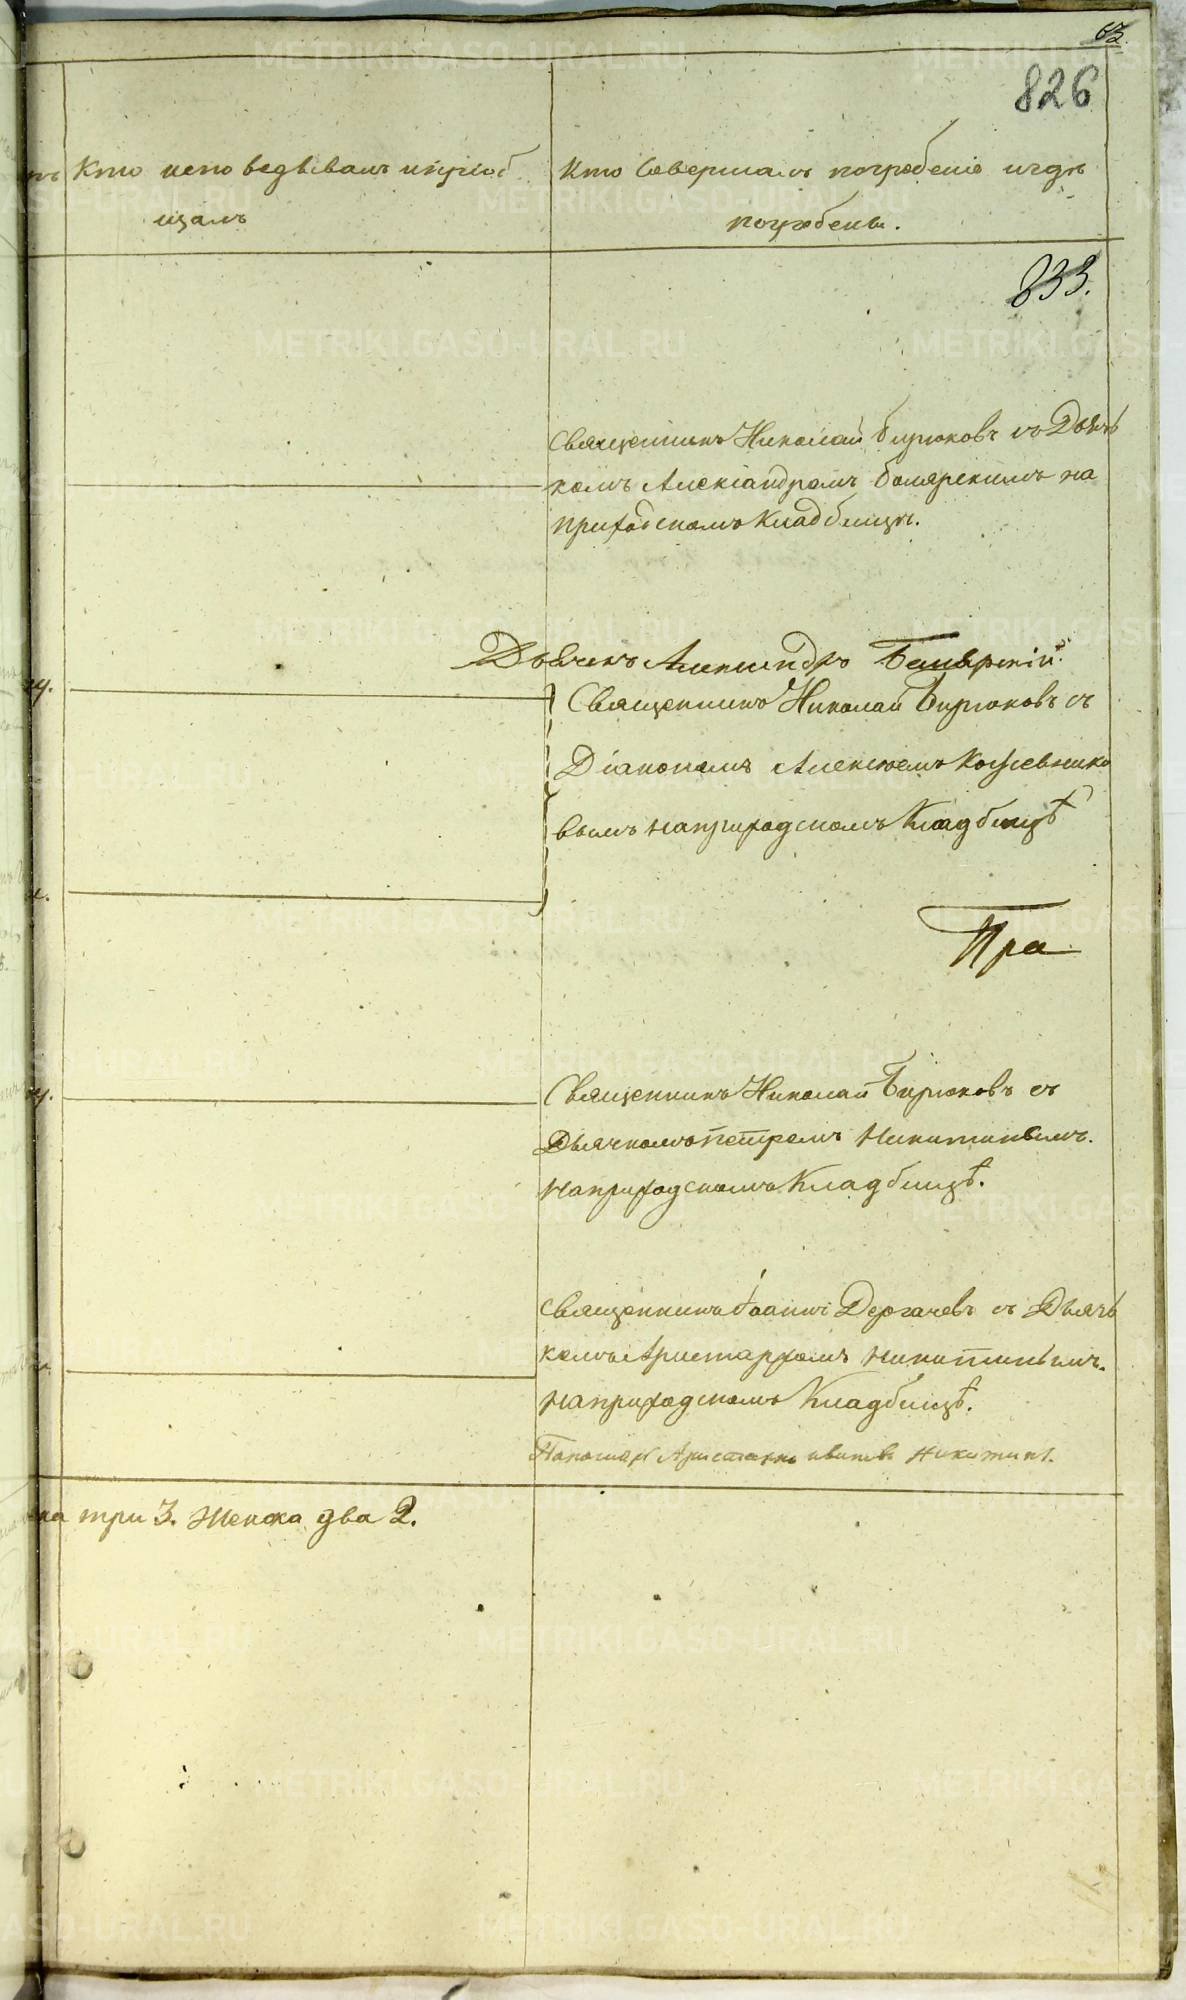 826
Кто исповѣдывалъ и пріоб
щалъ
Кто Совершалъ погребеніе и гдѣ
погребены.
833.
Священникъ Николай Бирюковъ со Дьяч
комъ Александромъ Боярскимъ на
приходскомъ Кладбищѣ.
Дьячекъ Александръ Боярскій.
Священникъ Николай Бирюковъ съ
Діакономъ Алексѣемъ Кожевнико
вымъ на приходскомъ Кладбищѣ
Пра
Священникъ Николай Бирюковъ съ
Дьячкомъ Петромъ Никитинымъ.
на приходскомъ Кладбищѣ.
Священникъ Іоаннъ Дергачевъ съ Дьячь
комъ Аристархомъ Никитинымъ.
на приходскомъ Кладбищѣ.
Пономарь Аристархъ Никитинъ.
ска три 3. Женска два 2.
METRIKI.GASO-URAL.RU